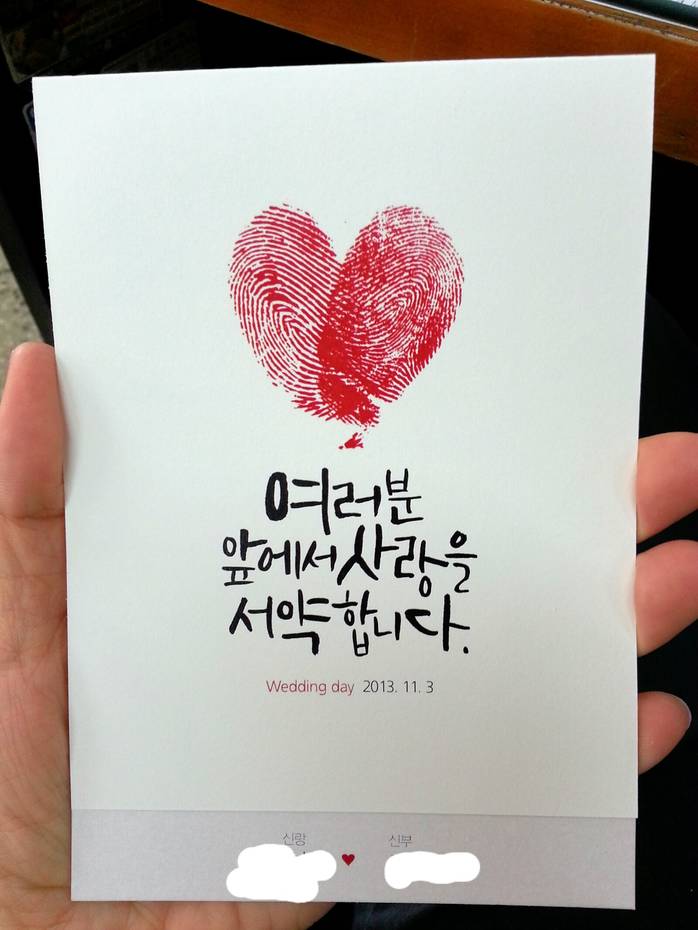 여러분
앞에서 사랑을
서약합니다.
Wedding day 2013. 11. 3
신랑 신부